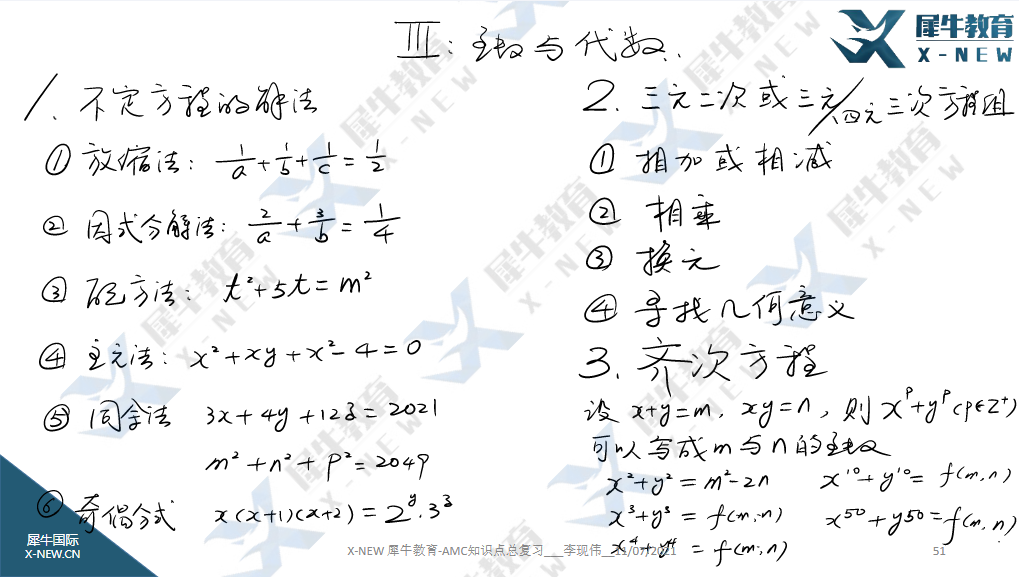 III: 函数与代数.
犀牛教育
X-NEW
1. 不定方程的解法
① 放缩法: 1/a + 1/b + 1/c = 1/2
② 因式分解法: 2/a + 3/b = 1/4
③ 配方法: t²+5t=m²
④ 主元法: x²+xy+x²-4=0
⑤ 同余法 3x+4y+123=2021
m²+n²+p²=2049
⑥ 奇偶分式 x(x+1)(x+2)=2^y·3^3
2. 三元二次或三元/四元三次方程组
① 相加或相减
② 相乘
③ 换元
④ 寻找几何意义
3. 齐次方程
设 x+y=m, xy=n, 则 x^p+y^p (p∈Z+)
可以写成m与n的函数
x²+y²=m²-2n x^10+y^10=f(m,n)
x³+y³=f(m,n) x^50+y^50=f(m,n)
x⁴+y⁴=f(m,n)
犀牛国际
X-NEW.CN
X-NEW 犀牛教育-AMC知识点总复习___李现伟__11/07/2021
51